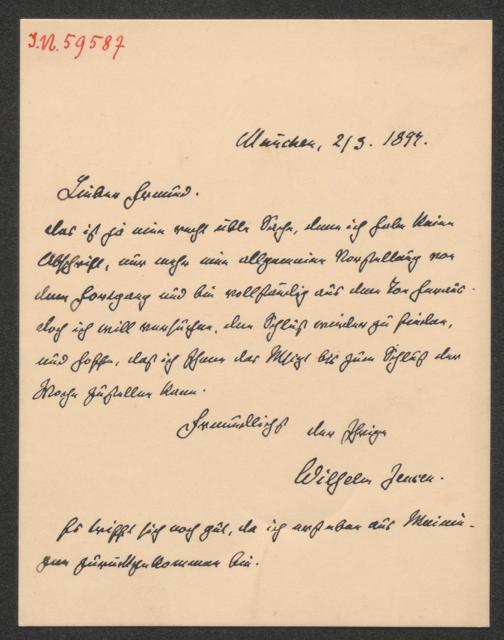 I.N. 59587
München, 2/3. 1897.
Lieber Freund.
das ist ja eine recht üble Sache, denn ich habe keine
Abschrift, nur mehr eine allgemeine Vorstellung von
dem Fortgang und bin vollständig aus dem Ton heraus.
doch ich will versuchen, den Schluß wieder zu finden,
und hoffe, daß ich Ihnen das Mspt bis zum Schluß der
Woche zustellen kann.
Freundlichst der Ihrige
Wilhelm Jensen.
Es trifft sich noch gut, da ich erst eben aus Meinin-
gen zurückgekommen bin.